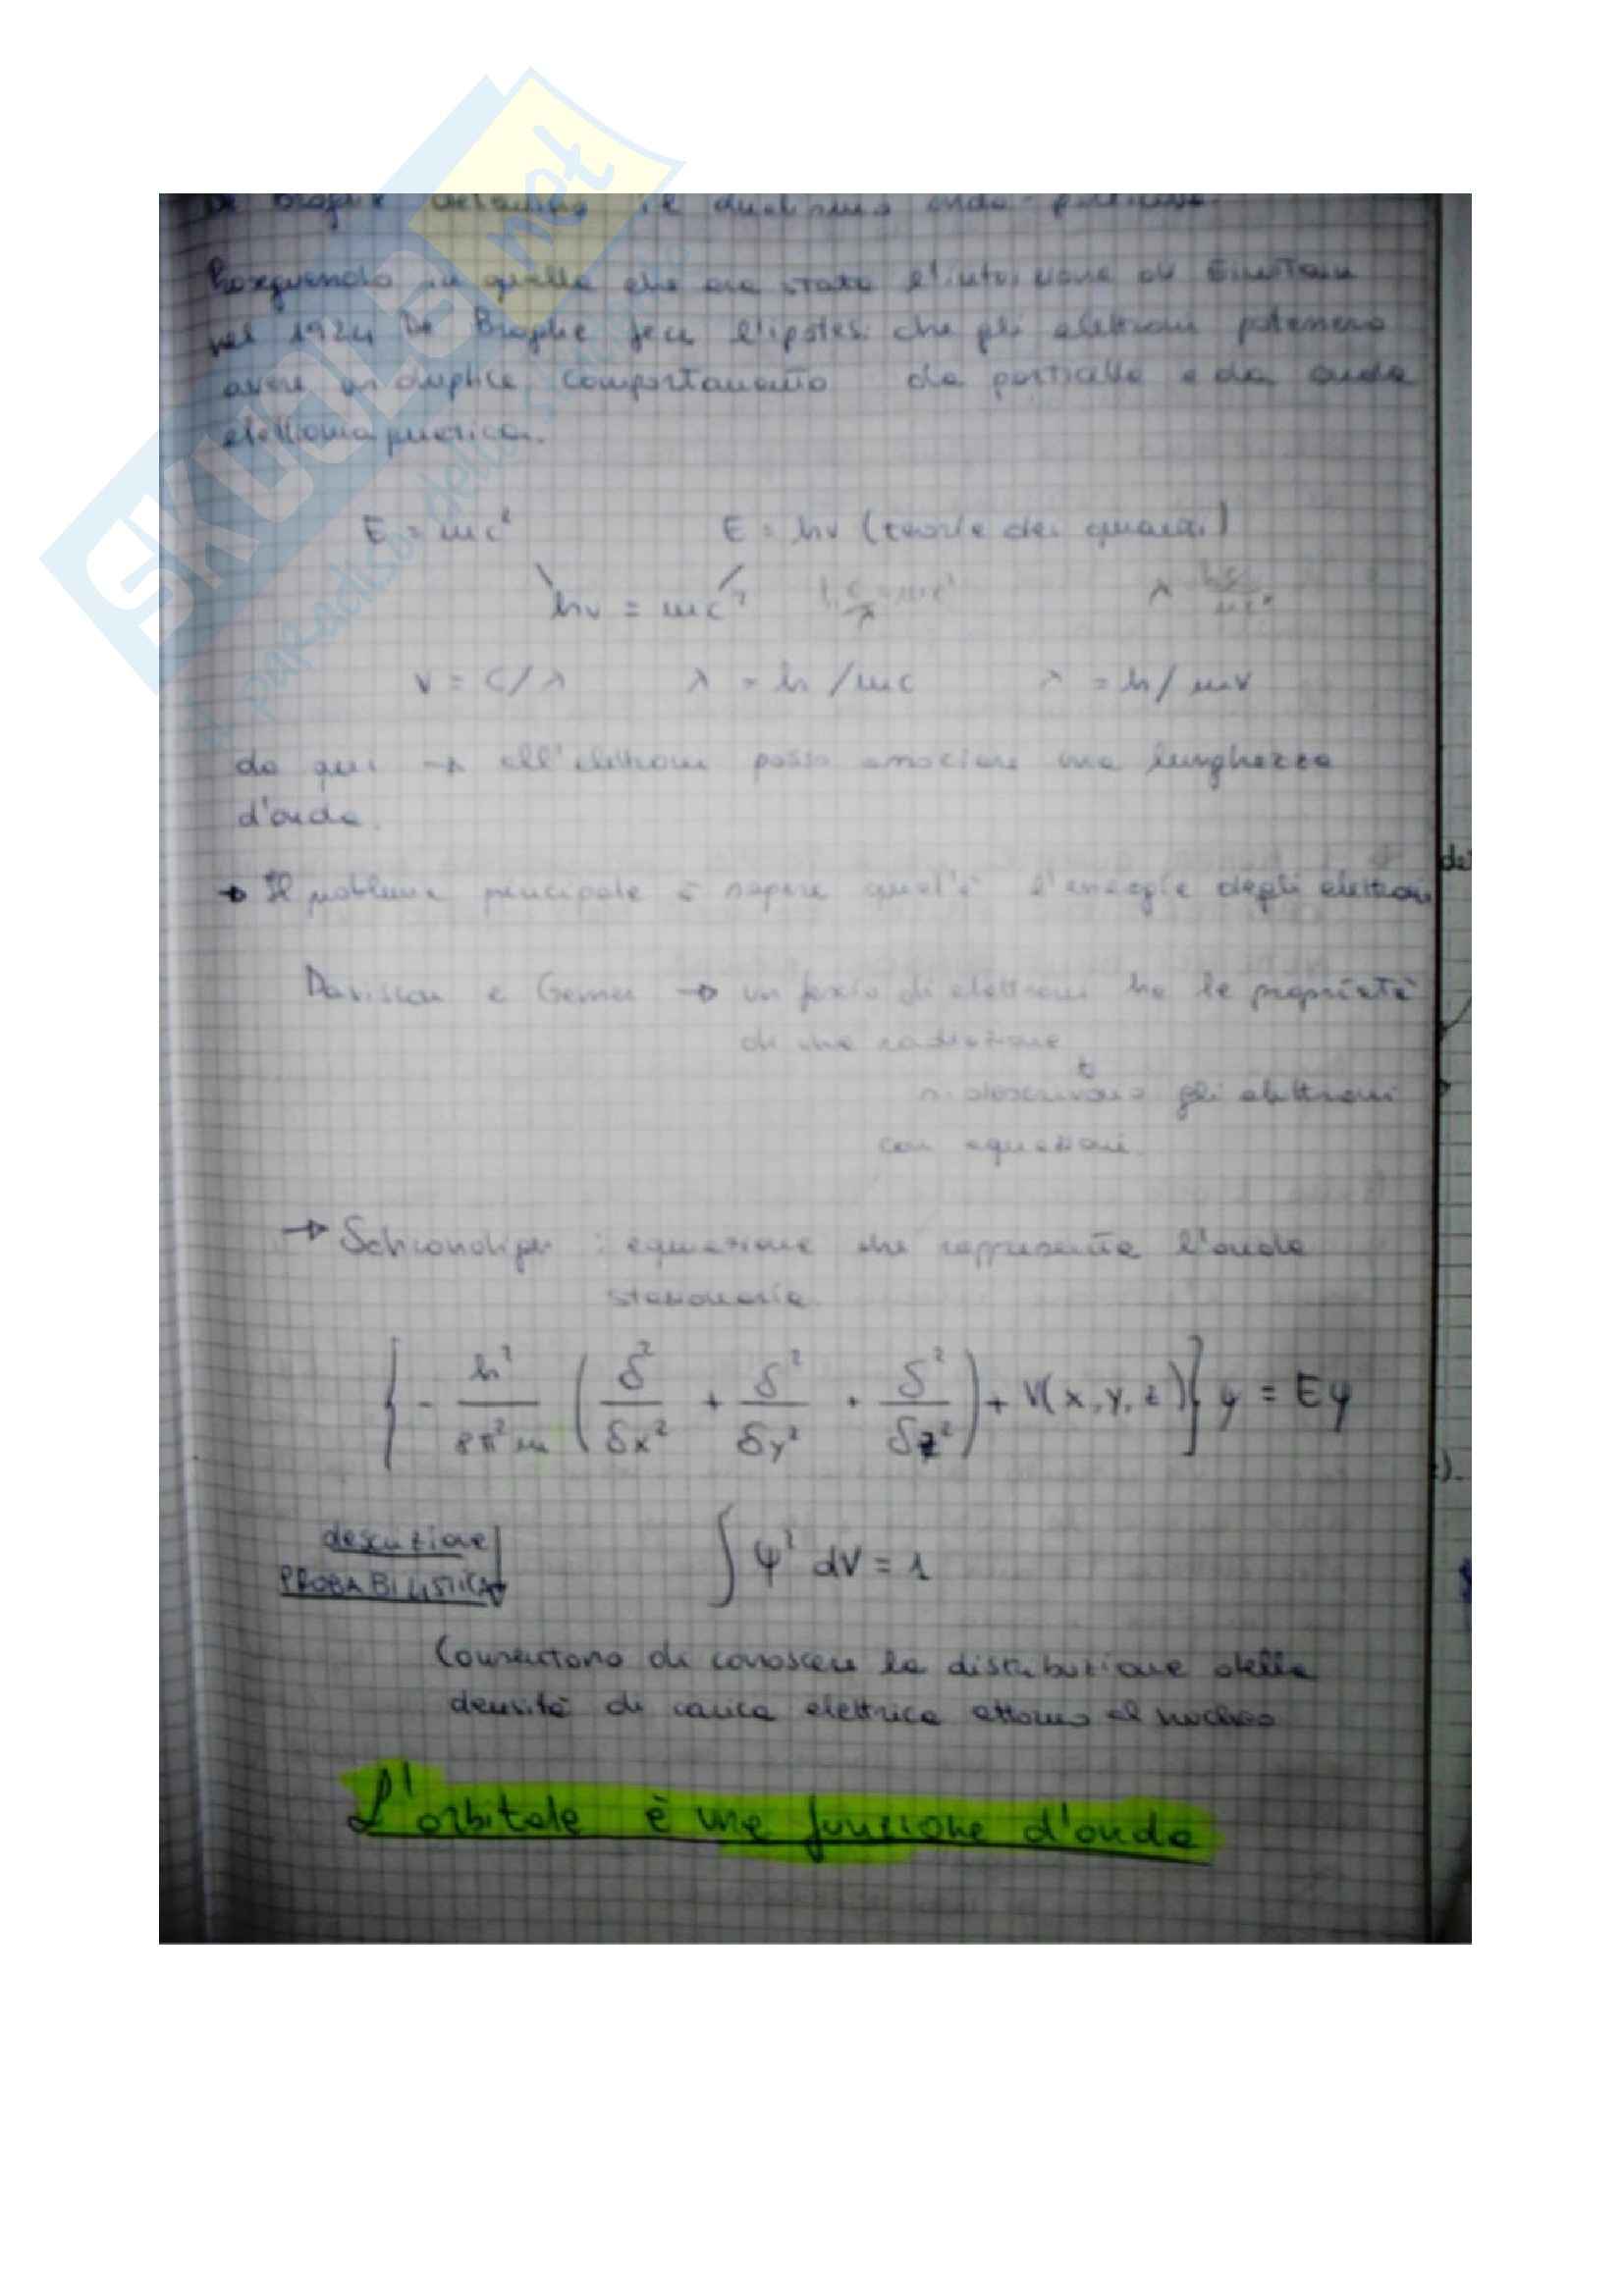 De Broglie il dualismo onda-
Proseguendo in quella che era stata l'intuizione di Einstein
nel 1924 De Broglie fece l'ipotesi che gli elettroni potessero
avere un duplice comportamento da particella e da onda
elettromagnetica.
E = mc² E = hν (teoria dei quanti)
hν = mc² h c/λ = mc² λ hc/mc²
ν = c/λ λ = h/mc λ = h/mv
da qui → all'elettrone posso associare una lunghezza
d'onda.
→ Il problema principale è sapere qual'è l'energia degli elettroni
Davisson e Germer → un fascio di elettroni ha le proprietà
di una radiazione
si descrivono gli elettroni
con equazioni.
→ : equazione che rappresenta l'onda
stazionaria.
{ - h²/8π²m ( δ²/δx² + δ²/δy² + δ²/δz² ) + V(x,y,z) } ψ = Eψ
PROBABILISTICA
∫ ψ² dV = 1
Consentono di conoscere la distribuzione della
densità di carica elettrica attorno al nucleo
L'orbitale è una funzione d'onda
SKUOLA.net
il paradiso dello studente